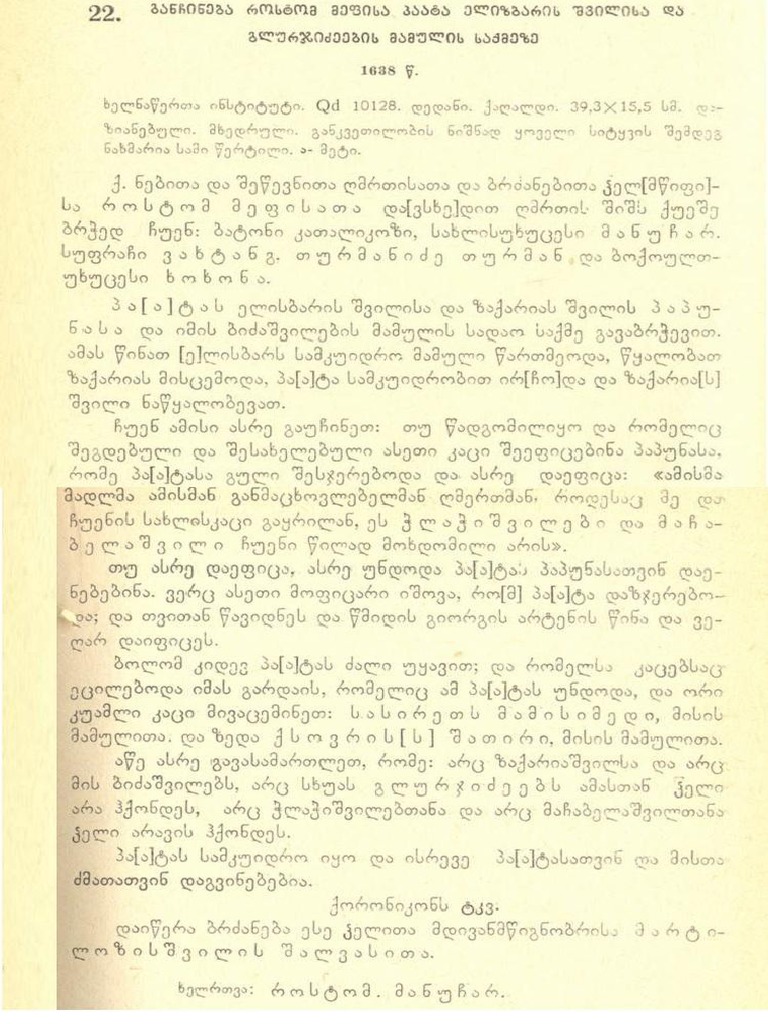 22. განჩინება როსტომ მეფისა პაატა ელიზბარის შვილისა და
გლურჯიძეების მამულის საქმეზე
1638 წ.
ხელნაწერთა ინსტიტუტი. Qd 10128. დედანი. ქაღალდი. 39,3×15,5 სმ. და-
ზიანებული. მხედრული. განკვეთილობის ნიშნად ყოველი სიტყვის შემდეგ
ნახმარია სამი წერტილი. ა- მეტი.
ქ. ნებითა და შეწევნითა ღმრთისათა და ბრძანებითა ჴელ[მწიფი]-
სა როსტომ მეფისათა და[ვსხე]დით ღმრთის შიშს ქუეშე
ბრჭედ ჩუენ: ბატონი კათალიკოზი, სახლისუხუცესი მანუჩარ.
სუფრაჩი ვახტანგ. თურმანიძე თურმან და ბოქოულთ-
უხუცესი ხოხონა.
პა[ა]ტას ელისბარის შვილისა და ზაქარიას შვილის პაპუ-
ნასა და იმის ბიძაშვილების მამულის სადაო საქმე გავაბრჭევით.
ამას წინათ [ე]ლისბარს სამკუიდრო მამული წართმეოდა, წყალობათ
ზაქარიას მისცემოდა, პა[ა]ტა სამკუიდრობით ირ[ჩო]და და ზაქარია[ს]
შვილი ნაწყალობევათ.
ჩუენ ამისი ასრე გაუჩინეთ: თუ წადგომილიყო და რომელიც
შეგდებული და შესახელებული ასეთი კაცი შეეფიცებინა პაპუნასა,
რომე პა[ა]ტასა გული შესჯერებოდა და ასრე დაეფიცა: «ამისმა
მადლმა ამისმან განმაცხოვლებელმან ღმერთმან, როდესაც მე და
ჩუენის სახლისკაცი გაყრილან, ეს ჭლაჭიშვილები და მაჩა-
ბელაშვილი ჩუენი წილად მოხდომილი არის».
თუ ასრე დაეფიცა, ასრე უნდოდა პა[ა]ტას პაპუნასათვინ დაე-
ნებებინა. ვერც ასეთი მოფიცარი იშოვა, რო[მ] პა[ა]ტა დაზჯერებო-
და; და თვითან წავიდნეს და წმიდის გიორგის არტენის წინა და ვე-
ღარ დაიფიცეს.
ბოლომ კიდევ პა[ა]ტას ძალი უყავით; და რომელსა კაცებსაც
ეცილებოდა იმას გარდაის, რომელიც ამ პა[ა]ტას უნდოდა, და ორი
კუამლი კაცი მივაცემინეთ: სასირეთს მამისიმედი, მისის
მამულითა. და ზედა ქსოვრის[ს] შათირი, მისის მამულითა.
აწე ასრე გავასამართლეთ, რომე: არც ზაქარიაშვილსა და არც
მის ბიძაშვილებს, არც სხუას გლურჯიძეებს ამასთან ჴელი
არა ჰქონდეს, არც ჭლაჭიშვილებთანა და არც მაჩაბელაშვილთანა
ჴელი არავის ჰქონდეს.
პა[ა]ტას სამკუიდრო იყო და ისრევე პა[ა]ტასათვინ და მისთა
ძმათათვინ დაგვინებებია.
ქორონიკონს ტკვ.
დაიწერა ბრძანება ესე ჴელითა მდივანმწიგნობრისა მარტი-
ლოზისშვილის შალვასითა.
ხელრთვა: როსტომ. მანუჩარ.